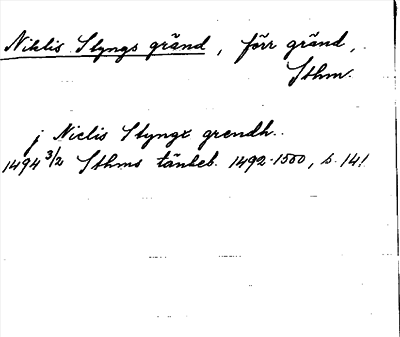 Niklis Slyngs gränd, förr gränd,
Sthm.
j Niclis Slyngx grendh..
1494 3/2 Sthms tänkeb. 1492-1500, s. 141